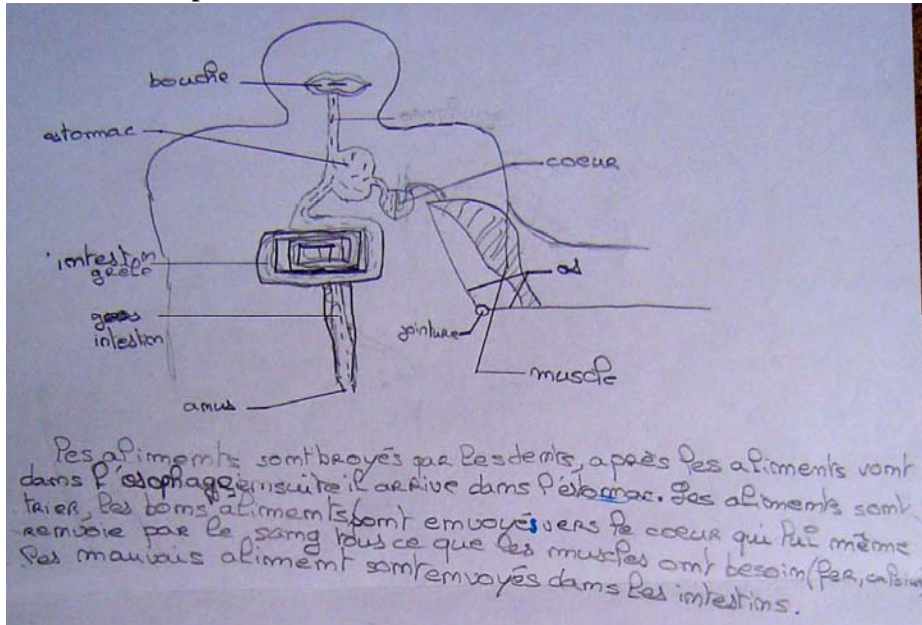 bouche
estomac
coeur
intestin
grele
os
gros
intestion
jointure
muscle
anus
Les aliments sont broyés par les dents, après les aliments vont
dans l'œsophage, ensuite il arrive dans l'éstomac. Les aliments sont
trier, les bons aliments sont envoyés vers le coeur qui lui même
renvoie par le sang tous ce que les muscles ont besoin (fer, calsium
les mauvais aliment sont envoyés dans les intestins.